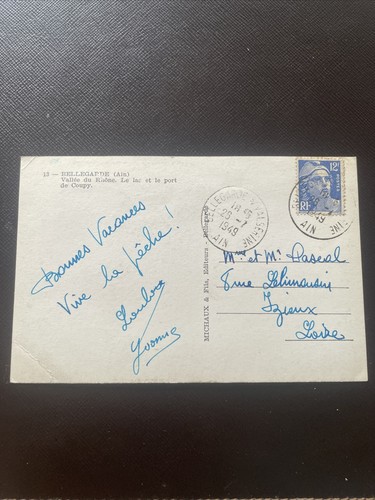 13 — BELLEGARDE (Ain)
Vallée du Rhône. Le lac et le port
de Coupy.
Bonnes Vacances
Vive la pêche!
Yvonne
MICHAUX & Fils, Editeurs - Bellegarde
BELLEGARDE
18
26 - 7
1949
AIN
12F
RF
49
AIN
Mme et Mr Pascal
Izieux
Loire